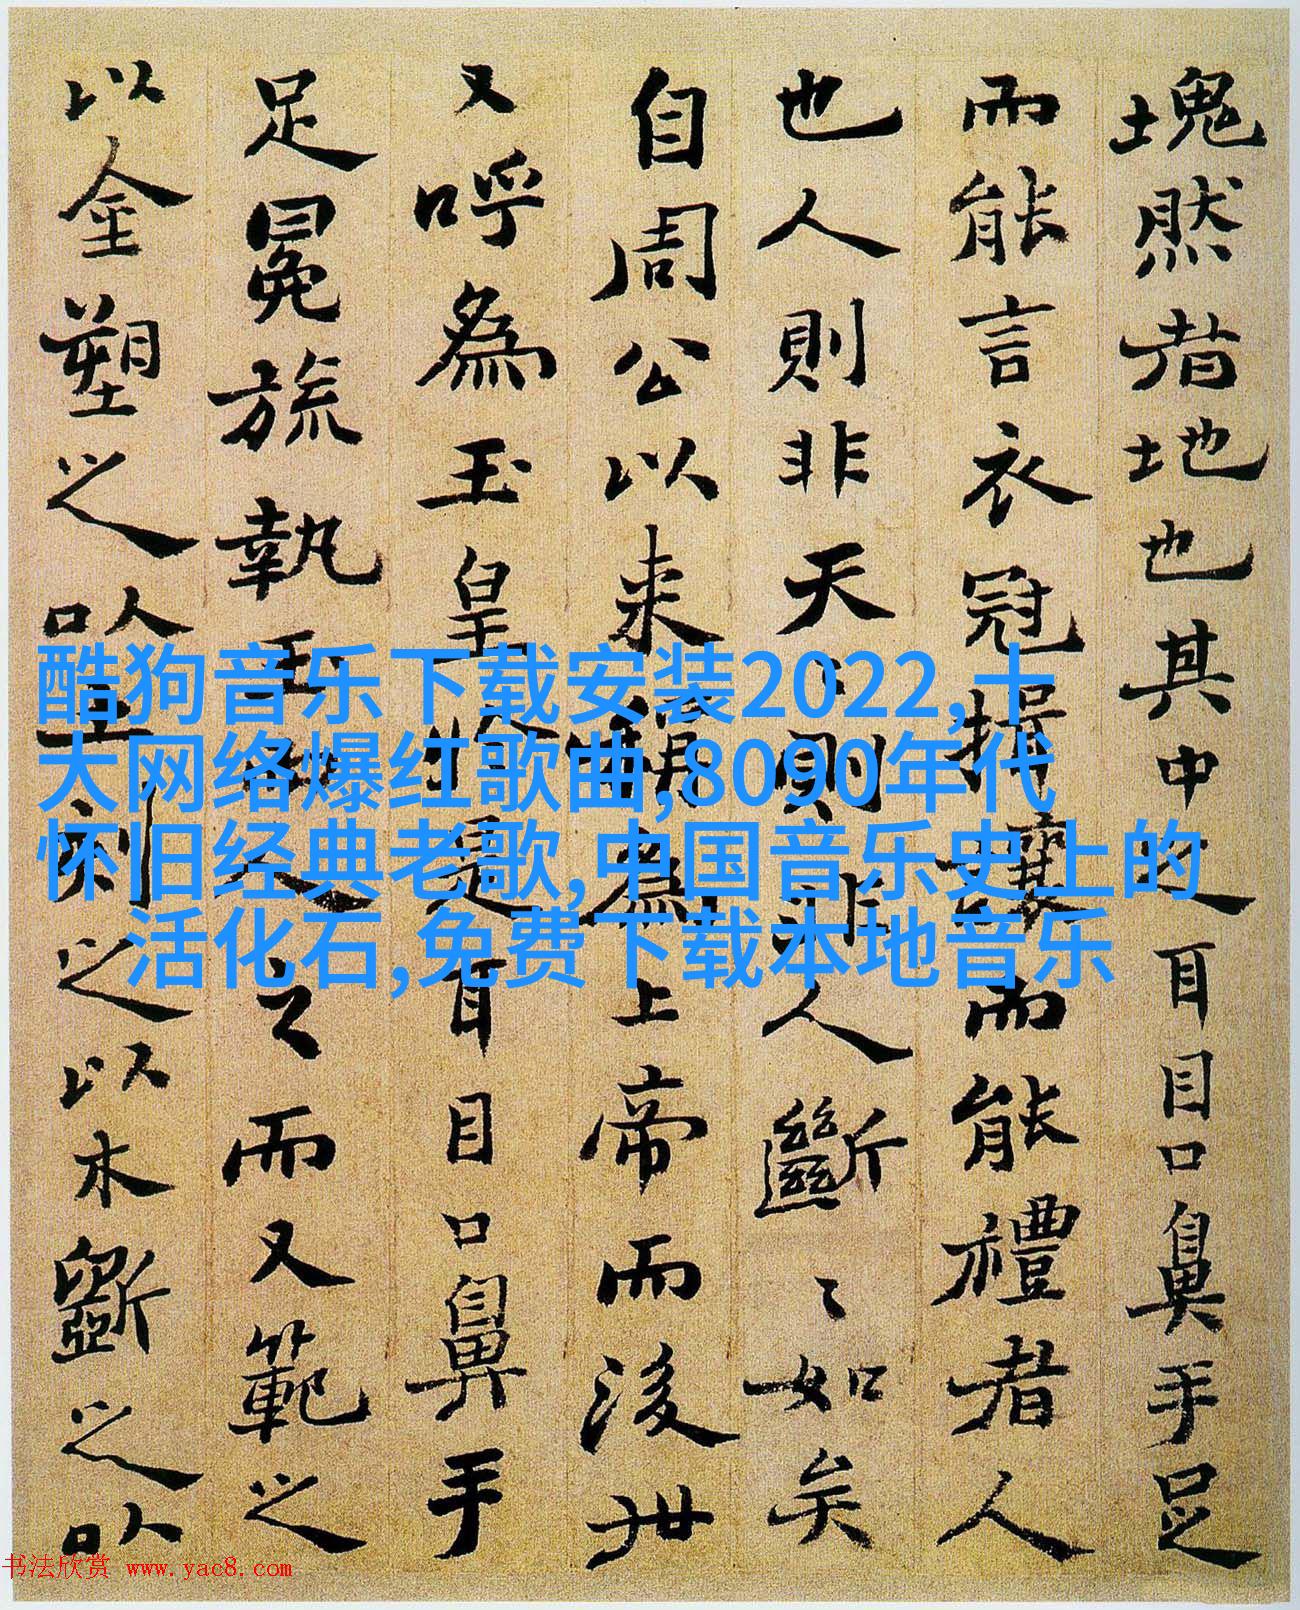 塊然者地也其中之耳目口鼻手足
而能言衣冠揖讓而能禮者人
也人則非天〻則非人斷〻如矣
自周公以来稱為上帝而後世
又呼為玉皇於是耳目口鼻手
足冕旒執玉而人之而又範之
以金塑之以土刻之以木斲之以
酷狗音乐下载安装2022,十
大网络爆红歌曲,8090年代
怀旧经典老歌,中国音乐史上的
活化石,免费下载本地音乐
书法欣赏 www.yac8.com